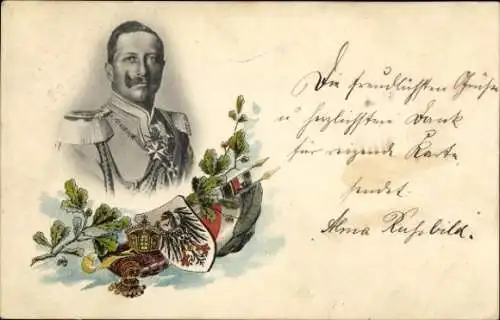 Die freundlichsten Grüße
u herzlichsten Dank
für reizende Karte
sendet
Alma